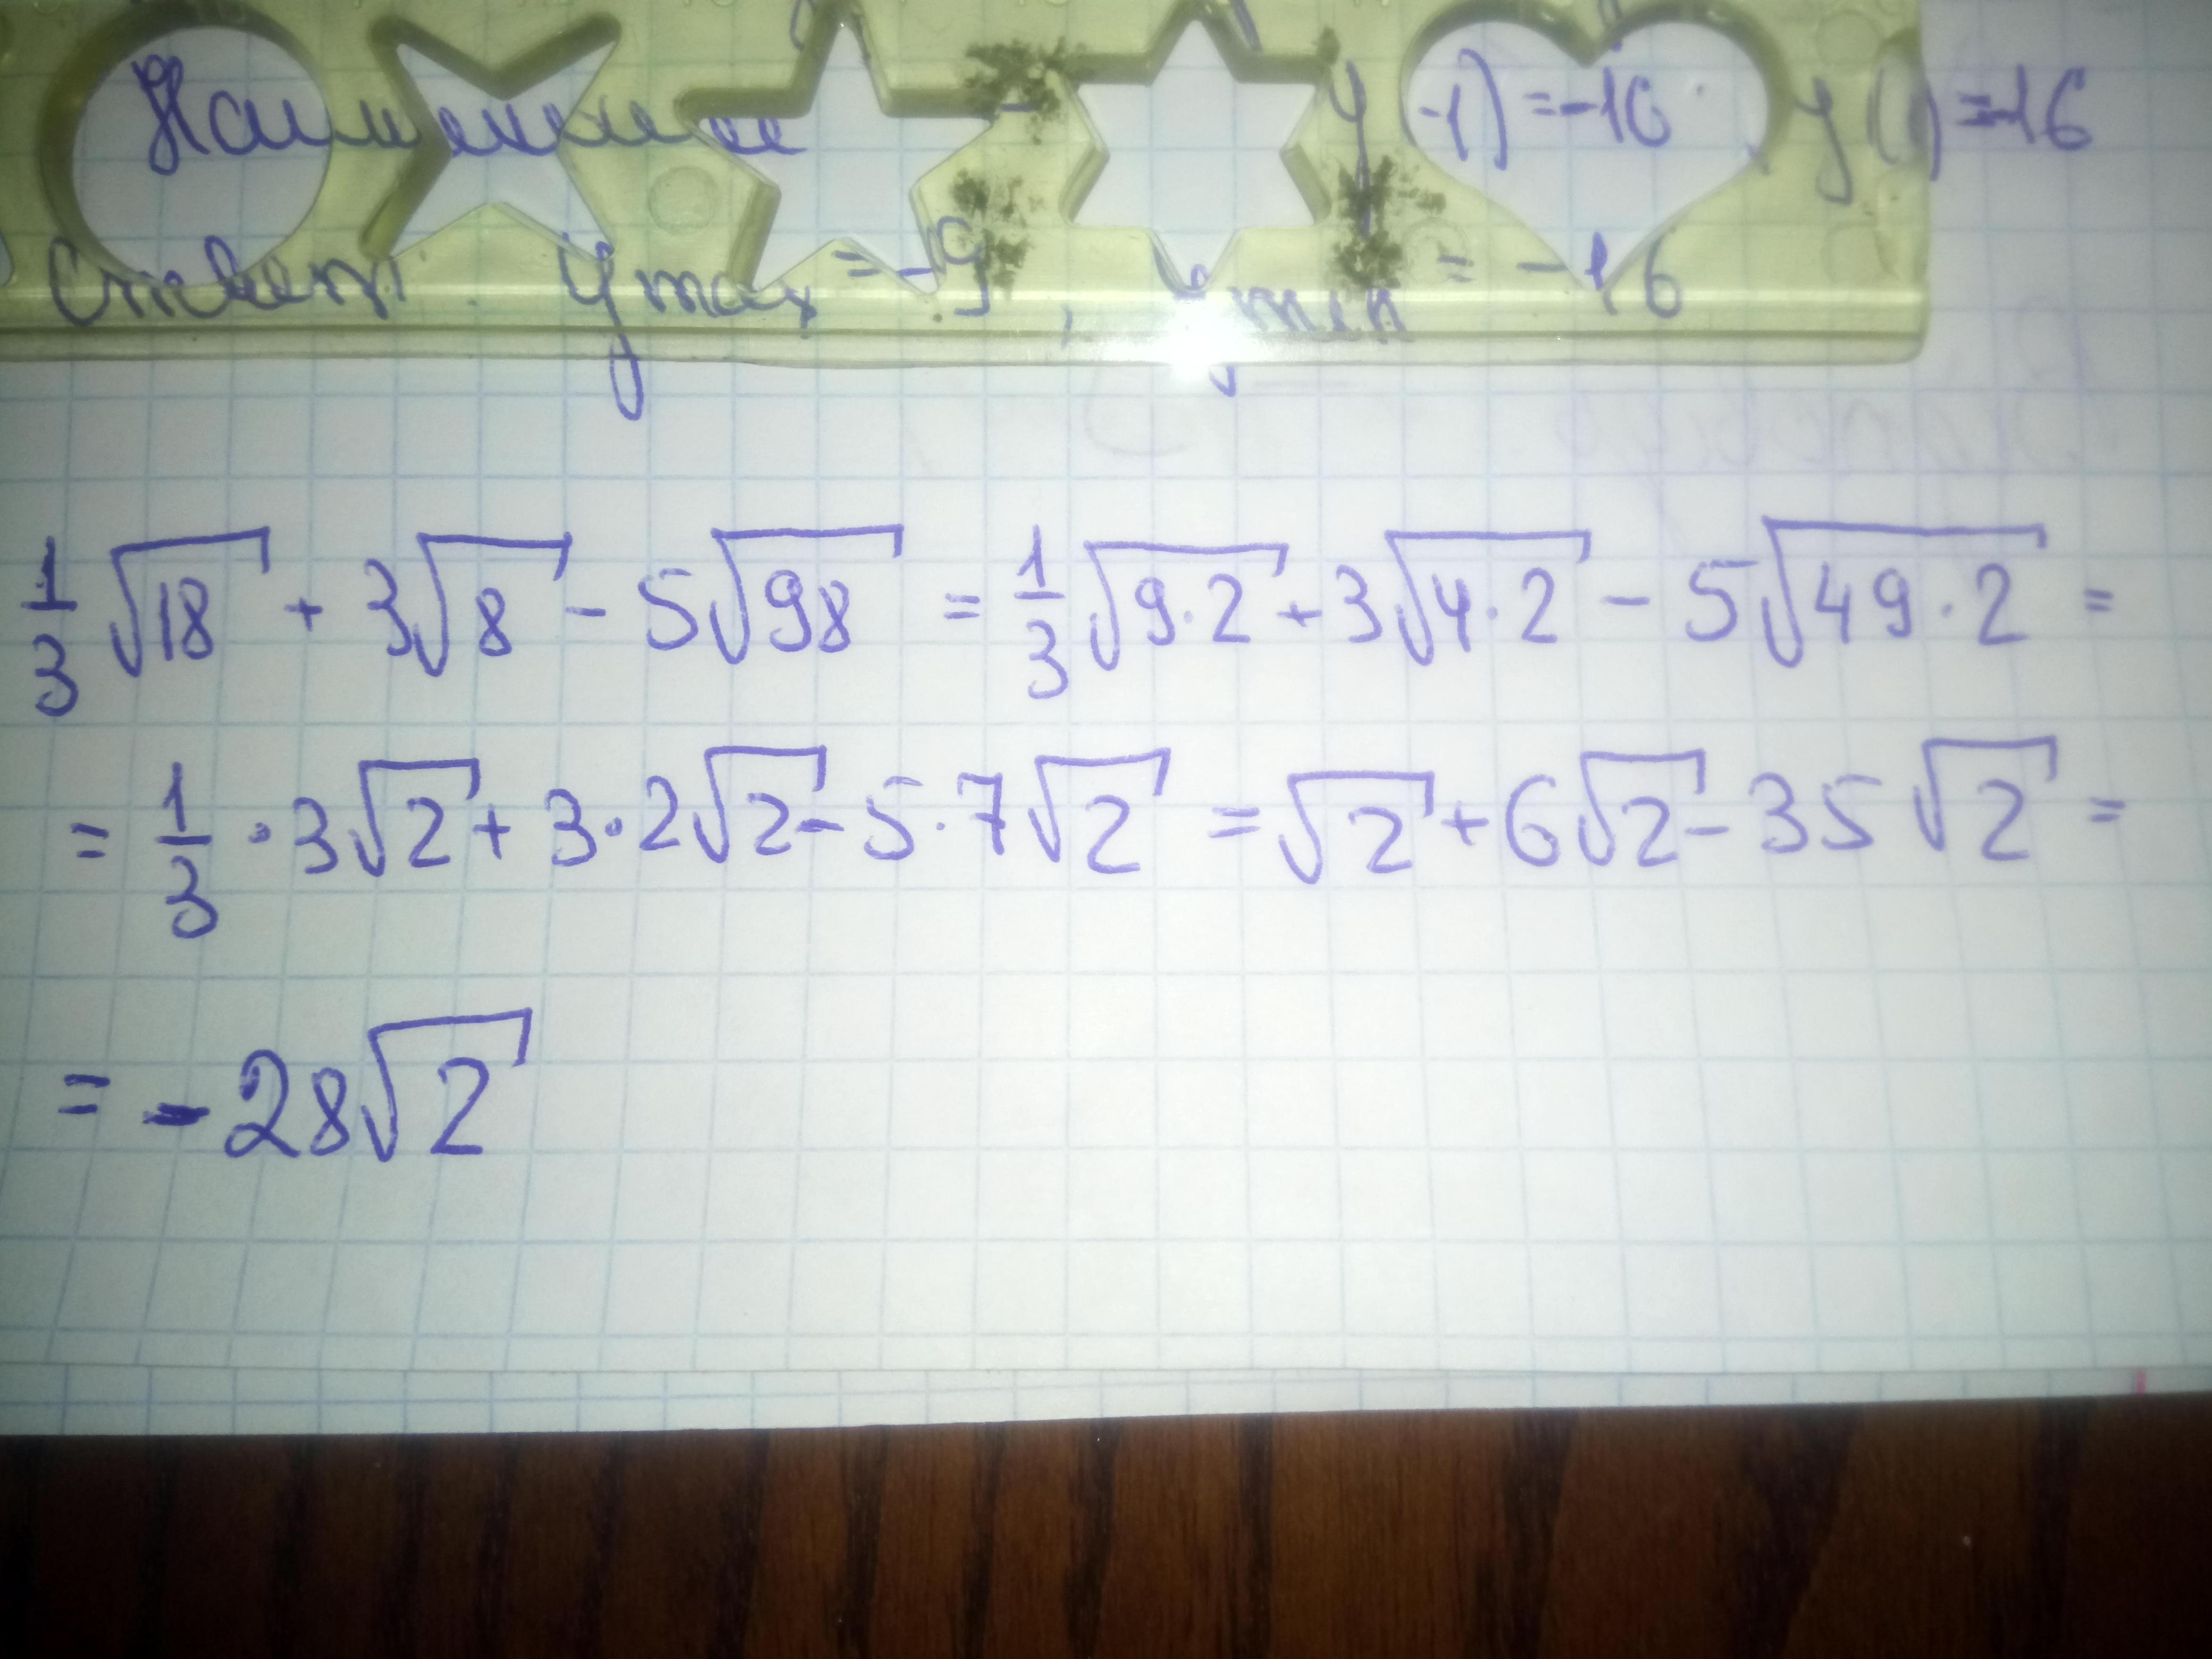 Наименьшее - y(-1) = -16 y(1) = -16
Ответ: y max = -9, y min = -16
1/3 √18 + 3√8 - 5√98 = 1/3 √9·2 + 3√4·2 - 5√49·2 =
= 1/3 · 3√2 + 3·2√2 - 5·7√2 = √2 + 6√2 - 35√2 =
= -28√2